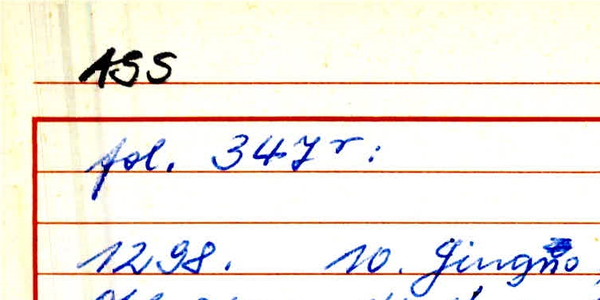 ASS
fol. 347r:
1298. 10. Giugno,